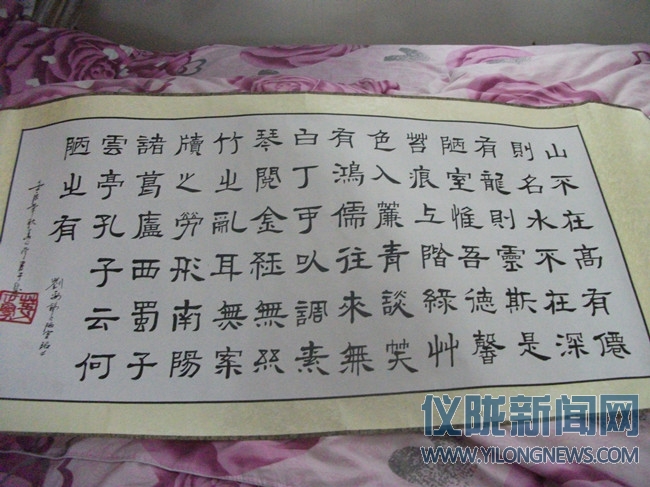 山不在高有僊
則名水不在深
有龍則靈斯是
陋室惟吾德馨
苔痕上階綠艸
色入簾青談笑
有鴻儒往來無
白丁可以調素
琴閱金經無絲
竹之亂耳無案
牘之勞形南陽
諸葛廬西蜀子
雲亭孔子云何
陋之有
仪陇新闻网
WWW.YILONGNEWS.COM